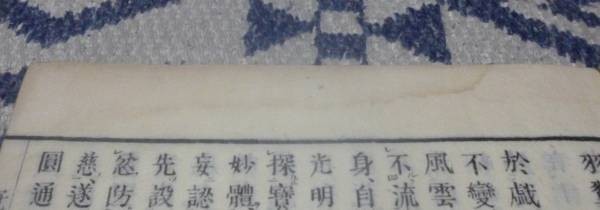 於戯
不變
風雲
不流
身自
光明
探寶
妙體
妄認
先設
忿防
慈遂
圓通